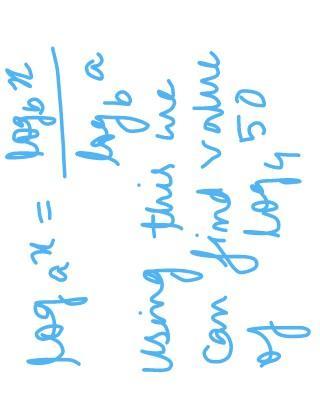 log_a x = log_b x / log_b a
Using this we
can find value
of log_4 50